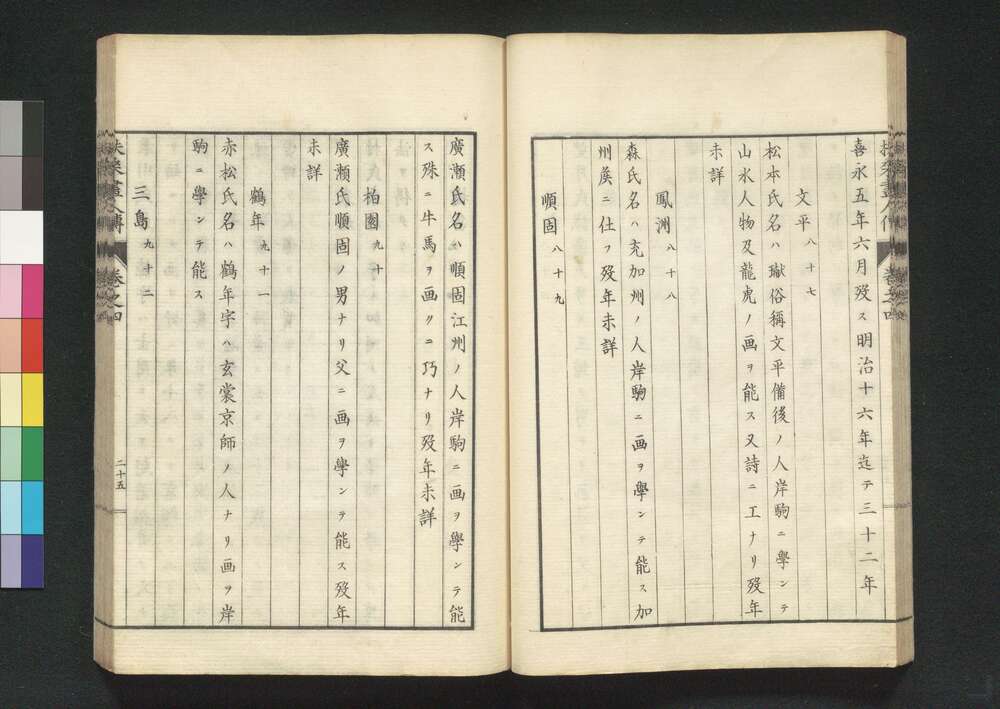 喜永五年六月歿ス明治十六年迄テ三十二年
文平八十七
松本氏名ハ獄俗稱文平備後ノ人岸駒ニ學ンテ
山水人物及龍虎ノ画ヲ能ス又詩ニ工ナリ歿年
未詳
鳳洲八十八
森氏名ハ充加州ノ人岸駒ニ画ヲ學ンテ能ス加
州矦ニ仕フ歿年未詳
順固八十九
廣瀬氏名ハ順固江州ノ人岸駒ニ画ヲ學ンテ能
ス殊ニ牛馬ヲ画クニ巧ナリ歿年未詳
柏圍九十
廣瀬氏順固ノ男ナリ父ニ画ヲ學ンテ能ス歿年
未詳
鶴年九十一
赤松氏名ハ鶴年字ハ玄裳京師ノ人ナリ画ヲ岸
駒ニ學ンテ能ス
三島九十二
卷之四
二十五